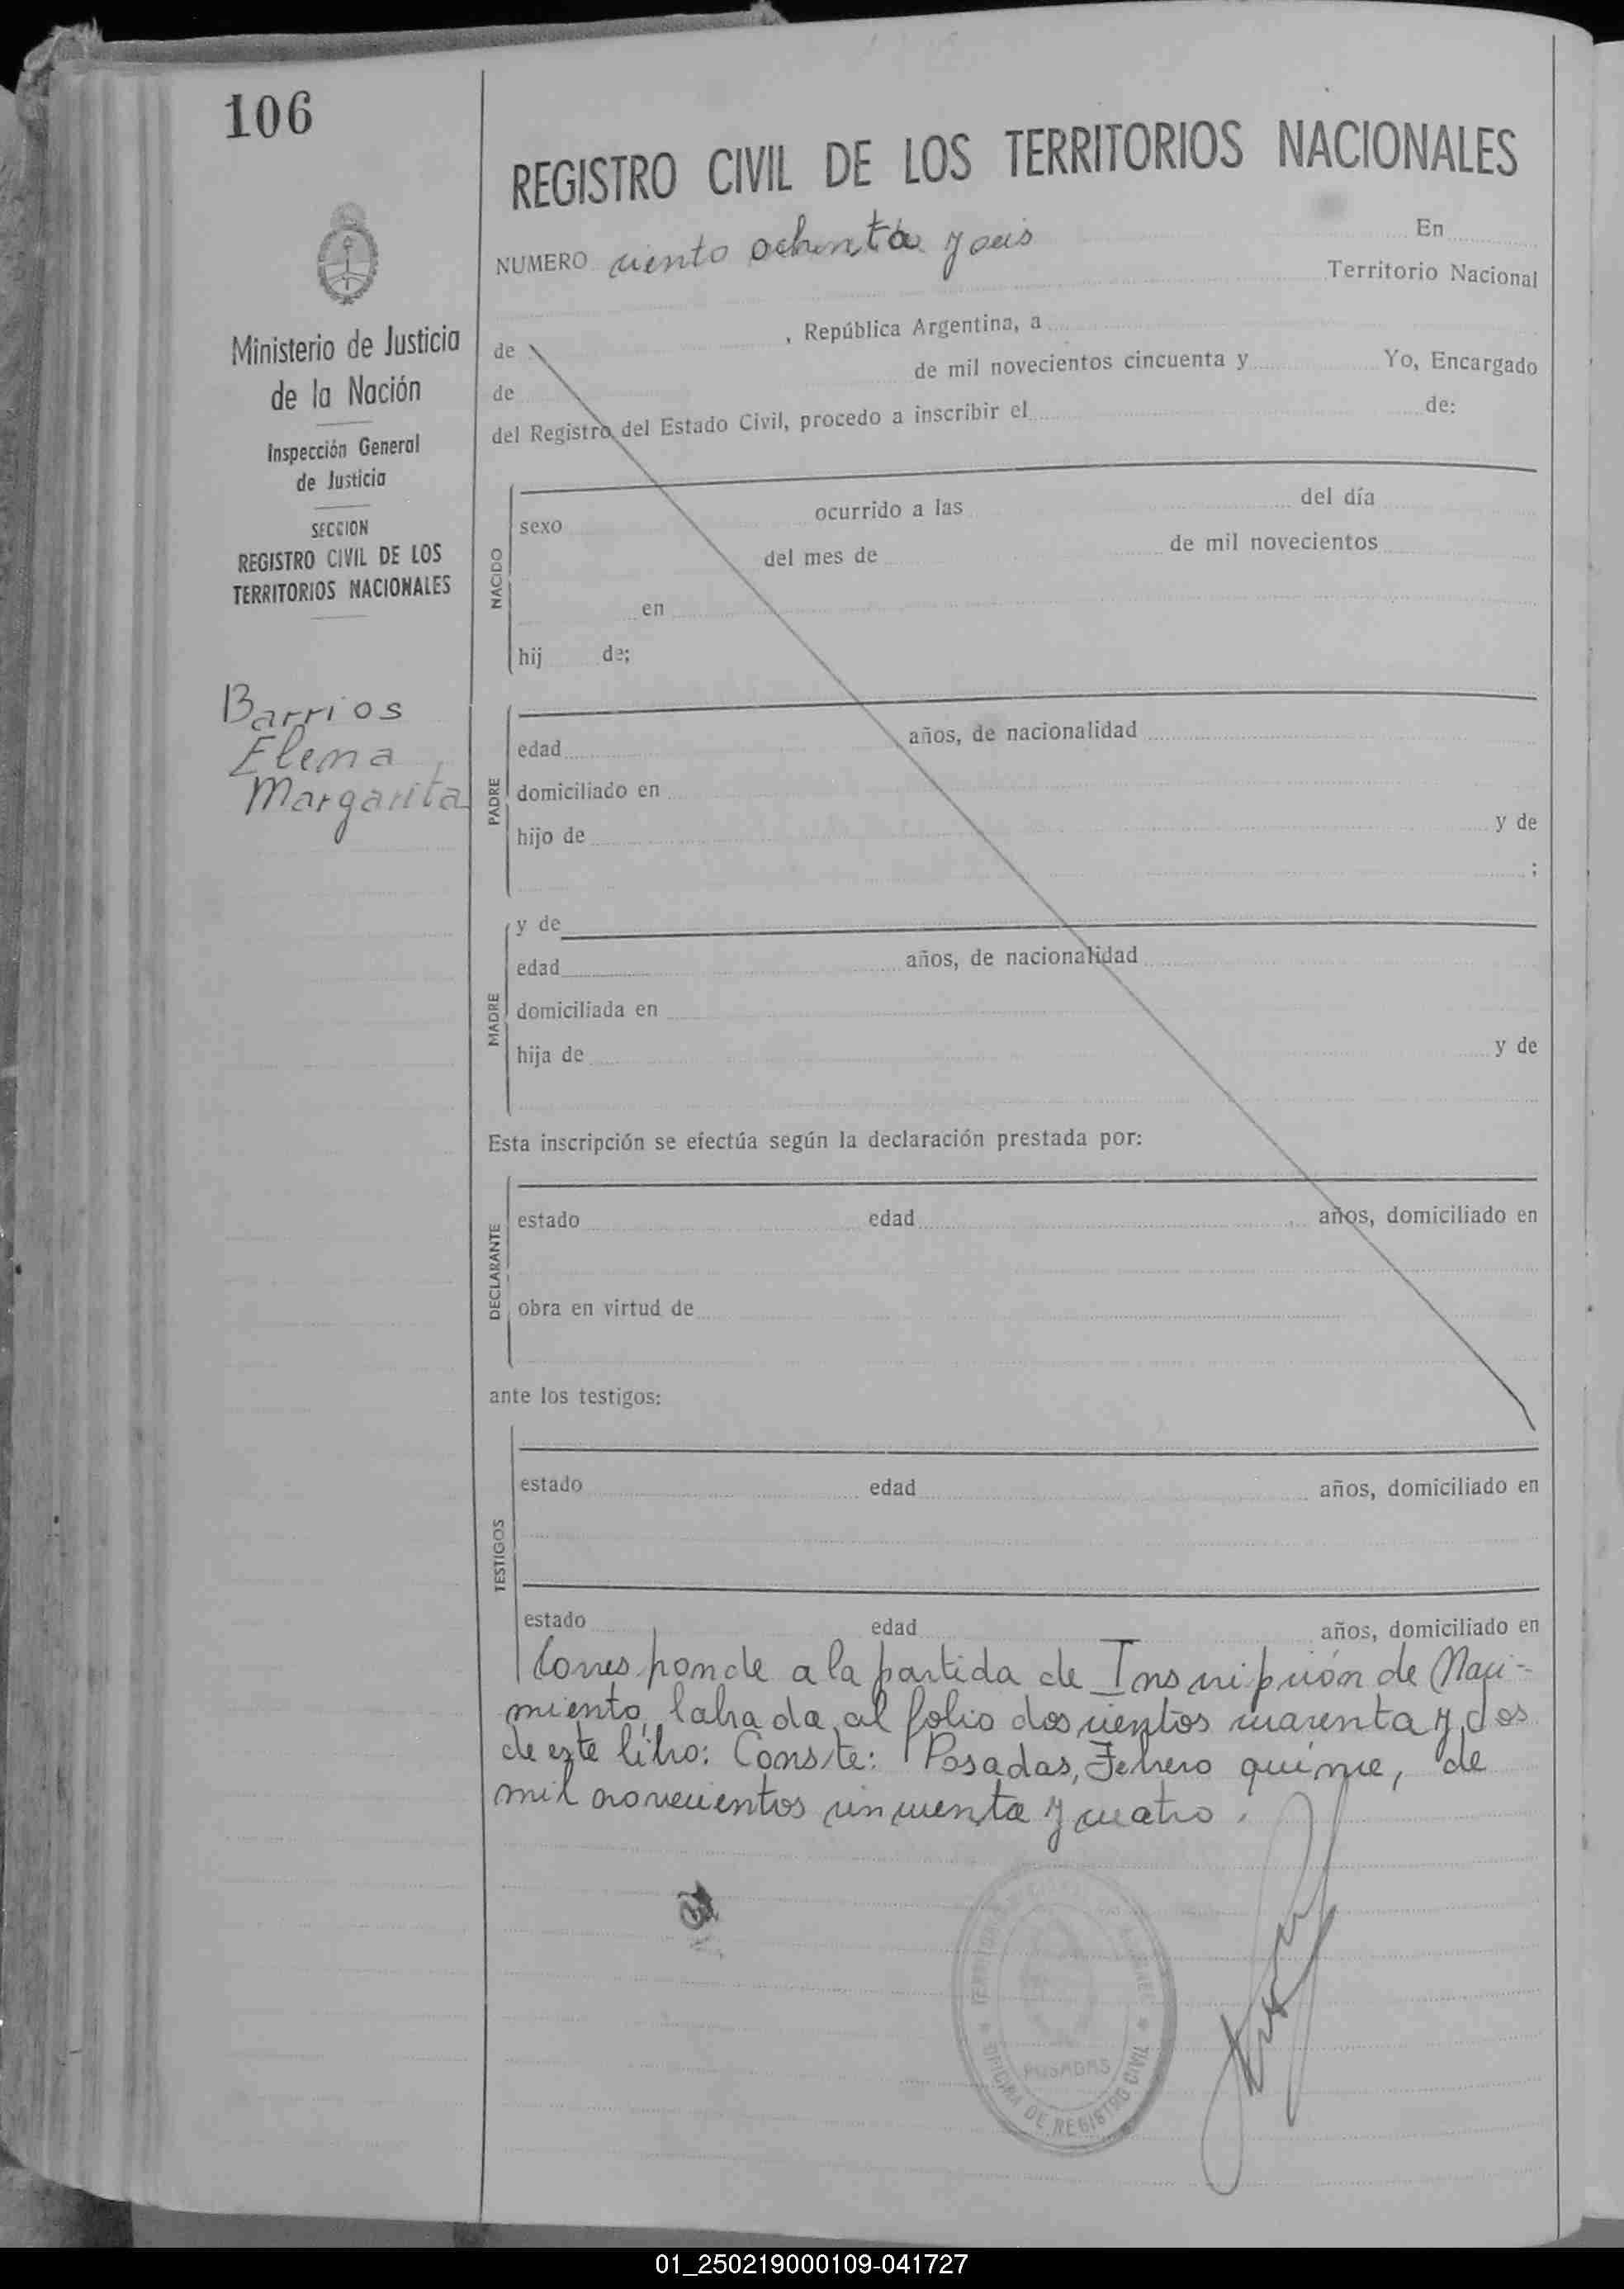 106
REGISTRO CIVIL DE LOS TERRITORIOS NACIONALES
NUMERO ciento ochenta y seis En
Territorio Nacional
de , República Argentina, a
de de mil novecientos cincuenta y Yo, Encargado
del Registro del Estado Civil, procedo a inscribir el de:
Ministerio de Justicia
de la Nación
Inspección General
de Justicia
SECCION
REGISTRO CIVIL DE LOS
TERRITORIOS NACIONALES
Barrios
Elena
Margarita
NACIDO
sexo ocurrido a las del día
del mes de de mil novecientos
en
hij de;
PADRE
edad años, de nacionalidad
domiciliado en
hijo de y de
;
MADRE
y de
edad años, de nacionalidad
domiciliada en
hija de y de
Esta inscripción se efectúa según la declaración prestada por:
DECLARANTE
estado edad años, domiciliado en
obra en virtud de
ante los testigos:
TESTIGOS
estado edad años, domiciliado en
estado edad años, domiciliado en
Corresponde a la partida de Inscripción de Naci-
miento, labrada al folio doscientos cuarenta y dos
de este libro: Conste: Posadas, Febrero quince, de
mil novecientos cincuenta y cuatro.
POSADAS
OFICINA DE REGISTRO CIVIL
01_250219000109-041727